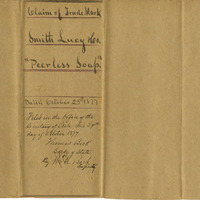 Claim of Trade Mark
Smith Lucy &Co.
"Peerless Soap"
Dated October 25th 1877
Filed in the Office of the
Secretary of State this 29th
day of October 1877
Thomas Beck
Secy of State
By
Deputy